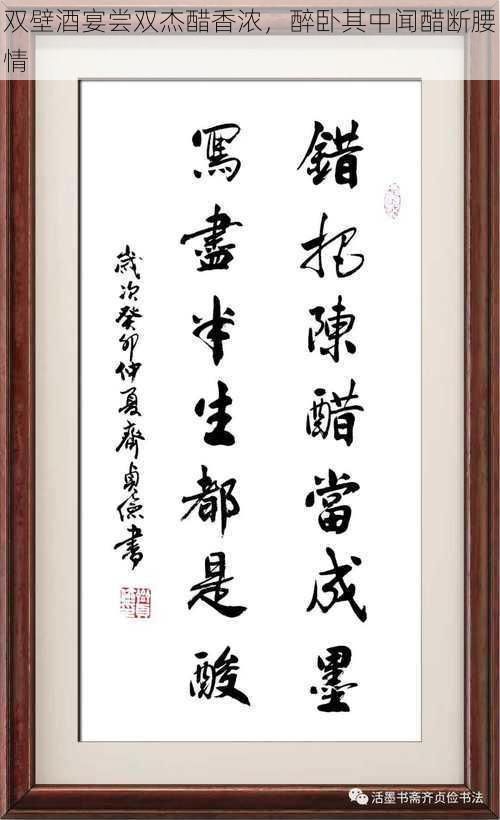 双壁酒宴尝双杰醋香浓，醉卧其中闻醋断腰
情
錯把陳醋當成墨
寫盡半生都是酸
歲次癸卯仲夏齊貞儉書
活墨书斋齐贞俭书法